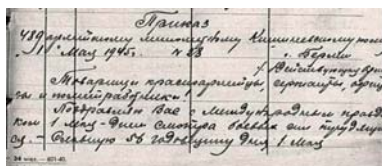 Приказ
489 армейскому минометному Кишиневскому полку
" 1 " Мая 1945г. № 53 г. Берлин
Действующая
Товарищи красноармейцы, сержанты, офице-
ры и политработники!
Поздравляю Вас с Международным празд-
ком 1 Мая - Днем смотра боевых сил трудящих
ся. -
годовщину дня 1 Мая